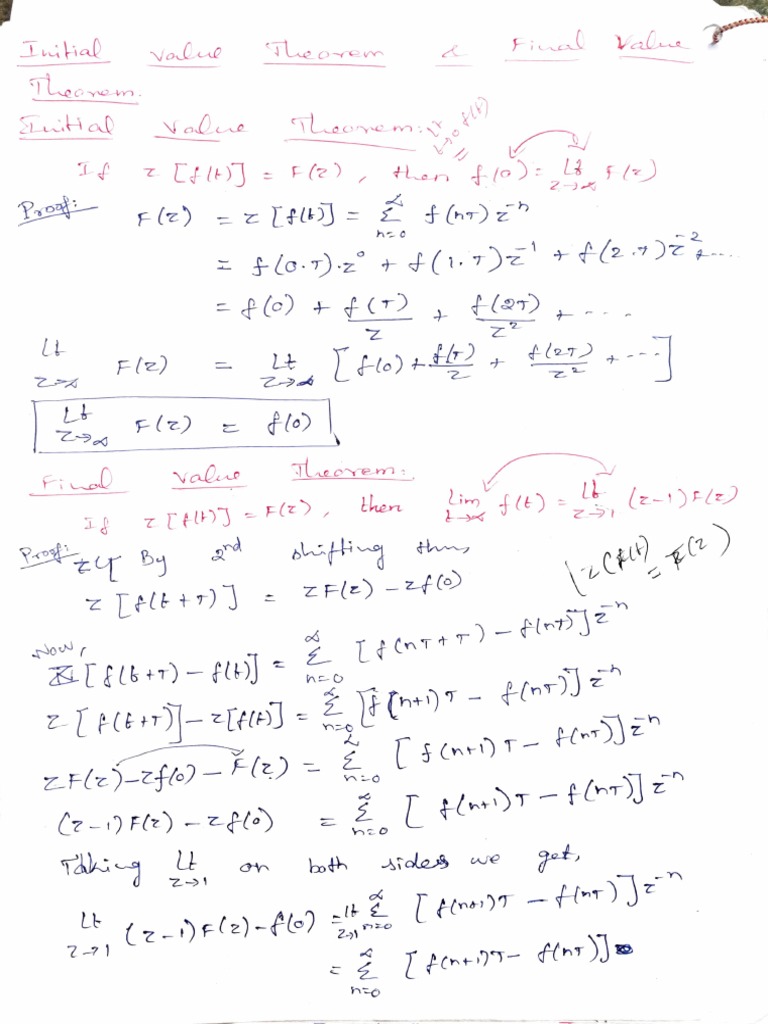 Initial Value Theorem & Final Value
Theorem.
Initial Value Theorem: Lt t→0 f(t)
If z[f(t)] = F(z), then f(0) = Lt z→∞ F(z)
Proof: F(z) = z[f(t)] = ∑ n=0 ∞ f(nT) z^-n
= f(0.T).z^0 + f(1.T)z^-1 + f(2.T)z^-2 + ....
= f(0) + f(T)/z + f(2T)/z^2 + ....
Lt z→∞ F(z) = Lt z→∞ [f(0) + f(T)/z + f(2T)/z^2 + ...]
Lt z→∞ F(z) = f(0)
Final Value Theorem:
If z[f(t)] = F(z), then Lim t→∞ f(t) = Lt z→1 (z-1) F(z)
Proof: By 2nd shifting thm,
z(f(t) = F(z)
z[f(t+T)] = zF(z) - zf(0)
Now,
z[f(t+T) - f(t)] = ∑ n=0 ∞ [f(nT+T) - f(nT)] z^-n
z[f(t+T)] - z[f(t)] = ∑ n=0 ∞ [f(n+1)T - f(nT)] z^-n
zF(z) - zf(0) - F(z) = ∑ n=0 ∞ [f(n+1)T - f(nT)] z^-n
(z-1)F(z) - zf(0) = ∑ n=0 ∞ [f(n+1)T - f(nT)] z^-n
Taking Lt z→1 on both sides we get,
Lt z→1 (z-1)F(z) - f(0) = Lt z→1 ∑ n=0 ∞ [f(n+1)T - f(nT)] z^-n
= ∑ n=0 ∞ [f(n+1)T - f(nT)]